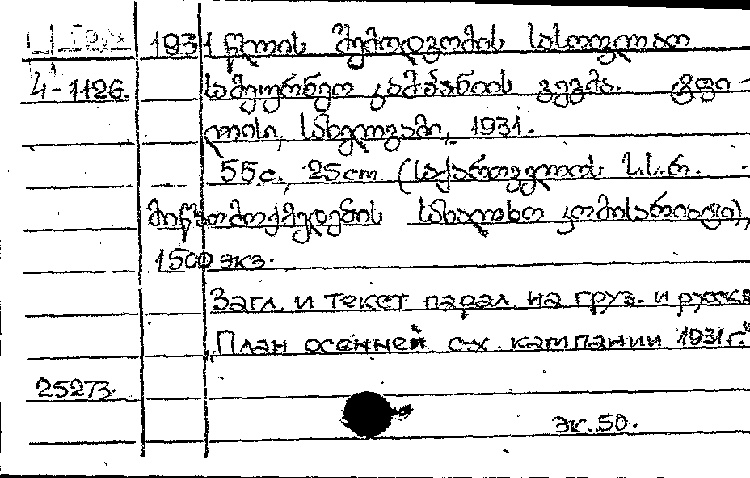 1931 წლის შემოდგომის სასოფლო
4-1126. სამეურნეო კამპანიის გეგმა. ტფი-
ლისი, სახელგამი, 1931.
55с., 25cm (საქართველოს ს.ს.რ.
მიწათმოქმედების სახალხო კომისარიატი),
1500 экз.
Загл. и текст парал. на груз. и русск
„План осенней с-х кампании 1931г."
25273.
эк. 50.